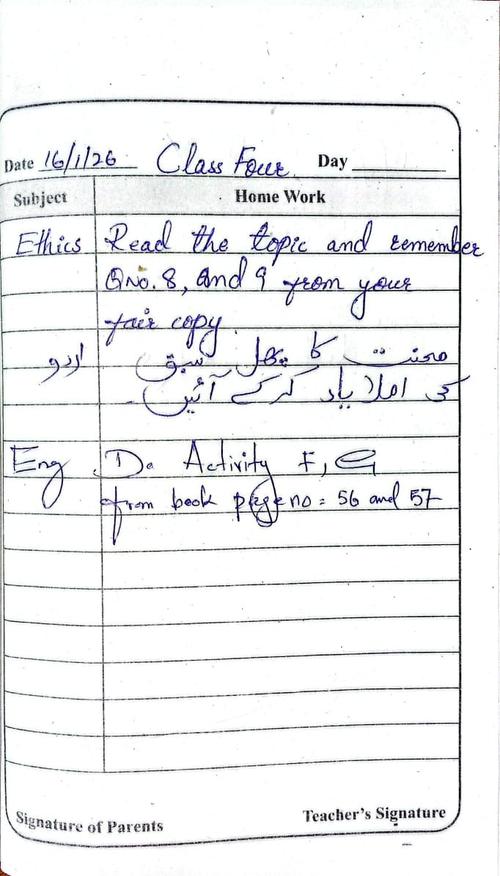 Date 16/1/26 Class Four Day
Subject Home Work
Ethics Read the topic and remember
Q No. 8, and 9 from your
fair copy.
اردو محنت کا پھل سبق
کی املا یاد کر کے آئیں۔
Eng Do Activity F, G
from book page no = 56 and 57
Signature of Parents Teacher's Signature